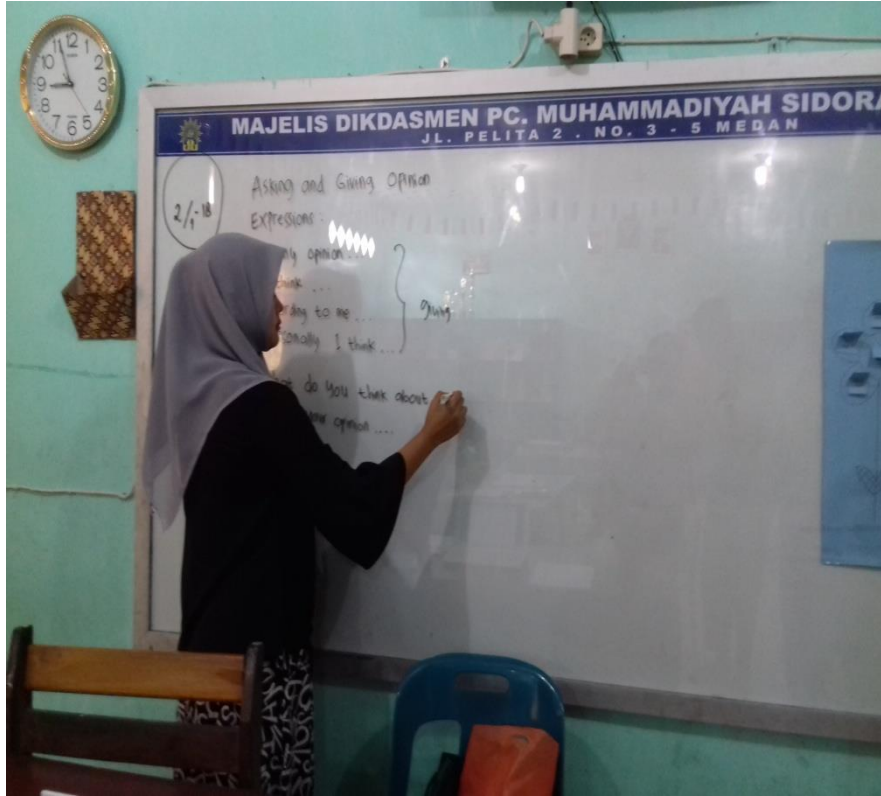 12
1
2
3
4
5
6
7
8
9
10
11
MAJELIS DIKDASMEN PC. MUHAMMADIYAH SIDORA
JL. PELITA 2 . NO. 3 - 5 MEDAN
Asking and Giving Opinion
Expressions :
my opinion ...
...
to me ...
I think ...
giving
do you think about
opinion ....